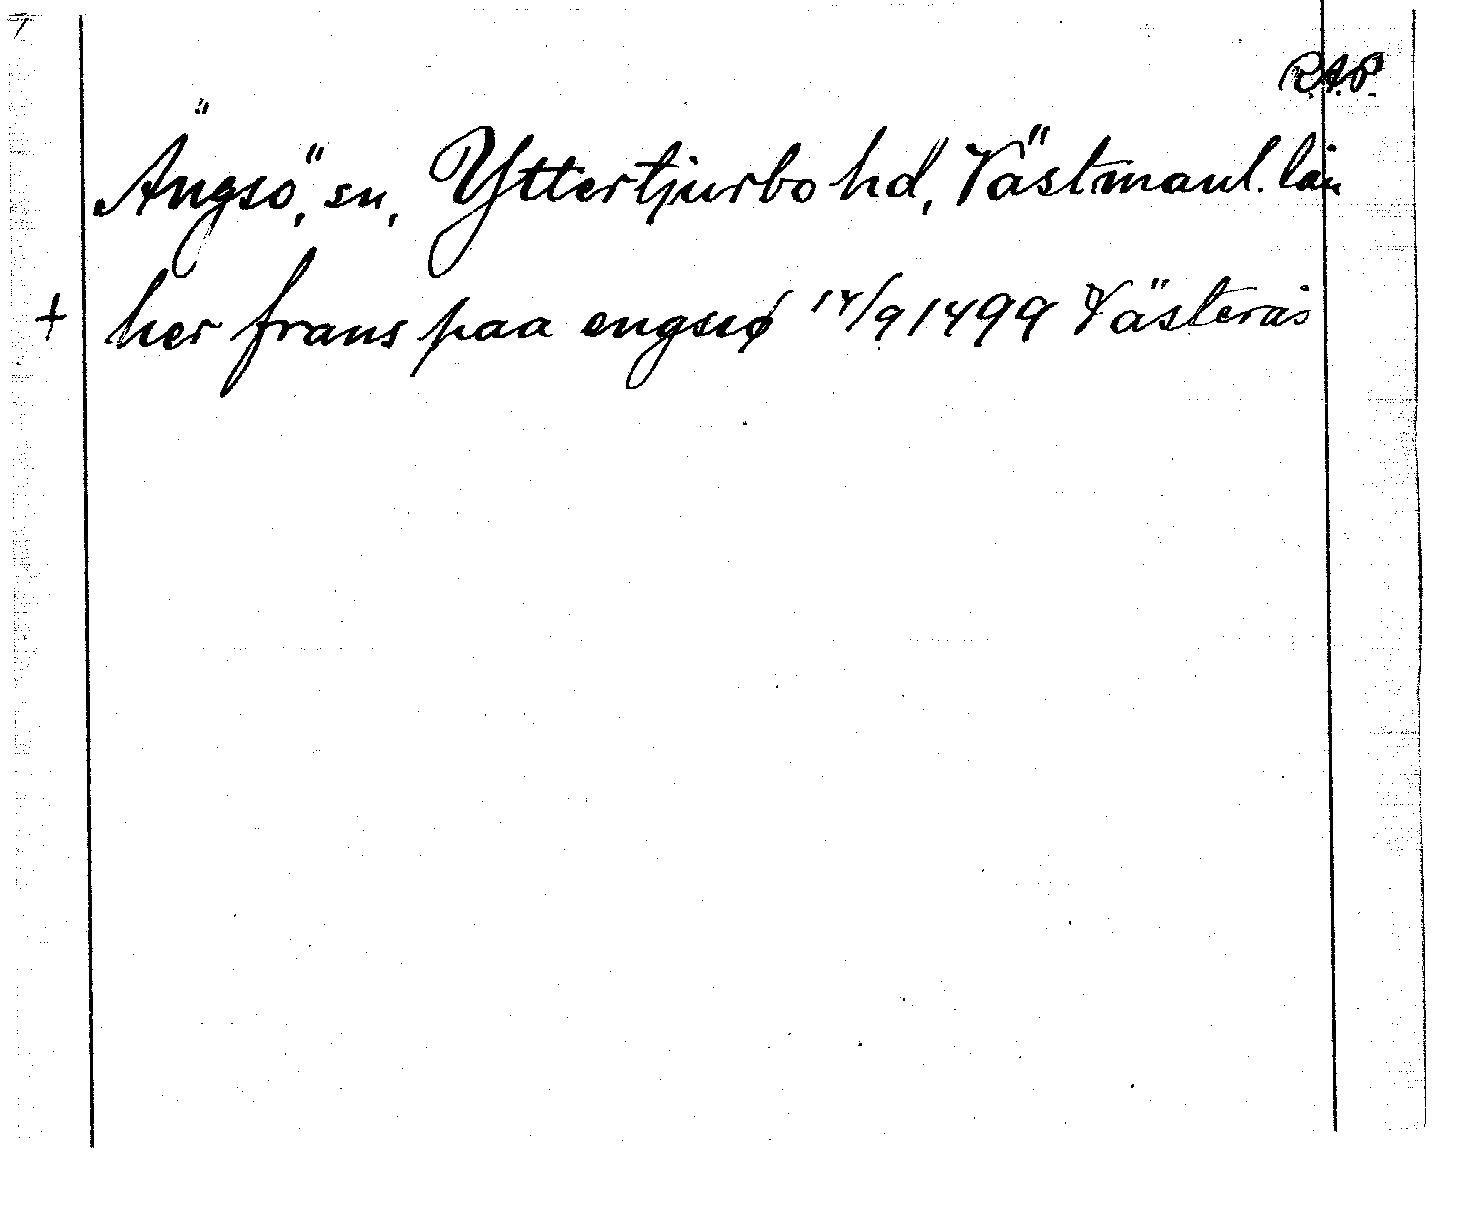 R.A.P.
Ängsö, sn, Yttertjurbo hd, Västmanl. län
+ her frans paa engsø 14/9 1499 Västerås